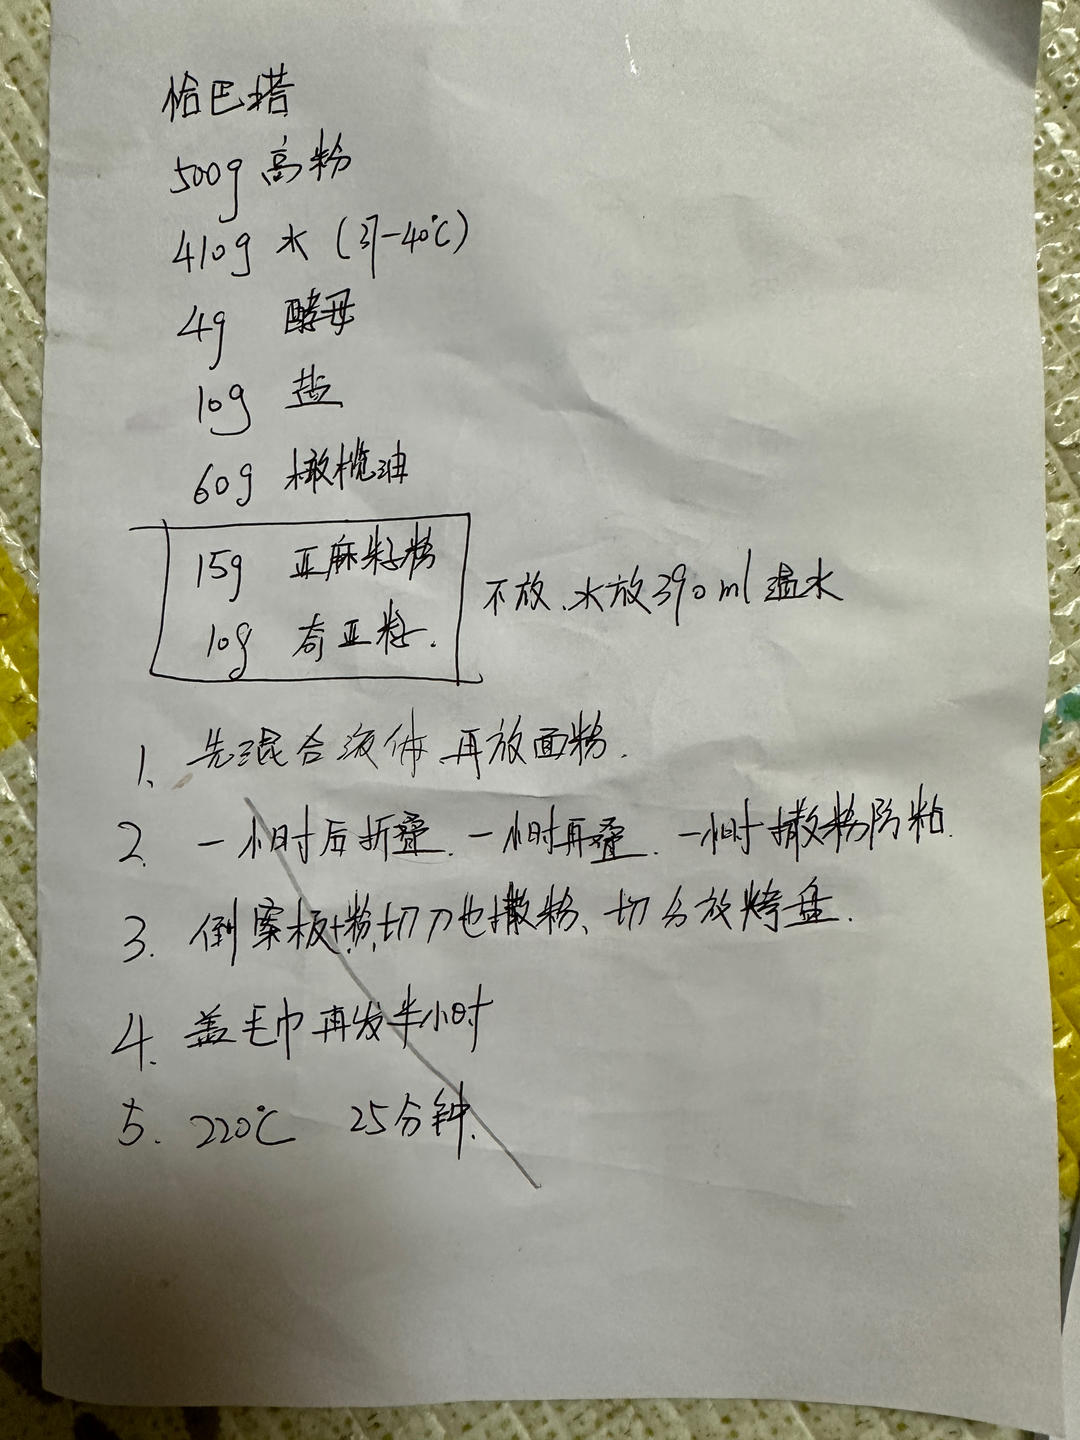 恰巴塔
500g 高粉
410g 水 (37-40℃)
4g 酵母
10g 盐
60g 橄榄油
15g 亚麻籽粉
10g 奇亚籽.
不放、水放390ml温水
1、先混合液体、再放面粉.
2. 一小时后折叠、一小时再叠、一小时撒粉防粘.
3. 倒案板+粉,切刀也撒粉、切分放烤盘.
4. 盖毛巾再发半小时
5. 220℃ 25分钟.